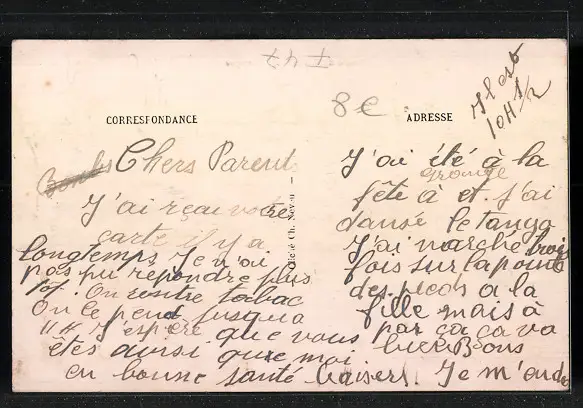 I 47
8€
CORRESPONDANCE
ADRESSE
Il est
10H 1/2
Chers Parents
J'ai reçu votre
carte il y a
longtemps Je n'ai
pas pu répondre plus
tôt. On rentre tabac
On le pend jusqu'a
11H J'espère que vous
êtes ainsi que moi
en bonne santé
Cliché Ch. Nev
J'ai été à la
grange
fête à et. j'ai
dansé le tango
J'ai marché trois
fois sur la pointe
des pieds a la
fille mais à
par ça ça va
bien Bons
baisers. Je m'endo